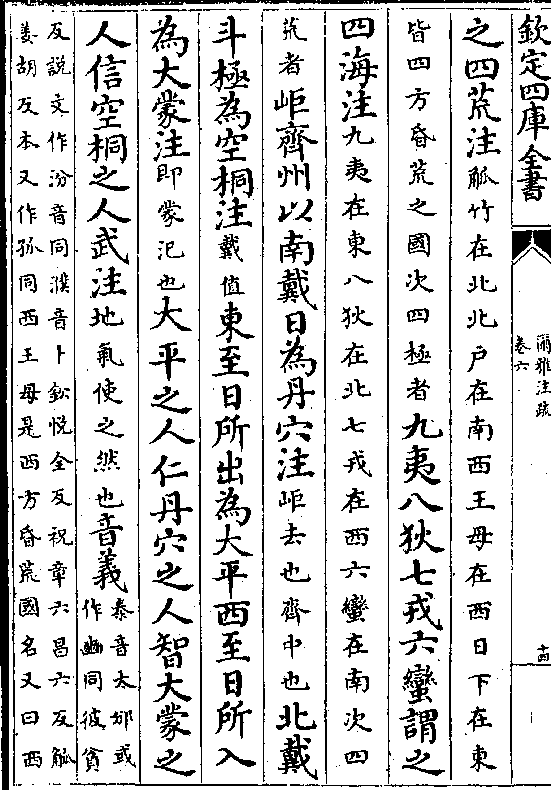 欽定四庫全書
爾雅注疏
卷六
十四
之四荒注觚竹在北北戶在南西王母在西日下在東
皆四方昏荒之國次四極者九夷八狄七戎六蠻謂之
四海注九夷在東八狄在北七戎在西六蠻在南次四
荒者岠齊州以南戴日為丹穴注岠去也齊中也北戴
斗極為空桐注戴值東至日所出為大平西至日所入
為大蒙注即蒙汜也大平之人仁丹穴之人智大蒙之
人信空桐之人武注地氣使之然也音義泰音太邠或
作豳同彼貧
反說文作汾音同濮音卜鈆悅全反祝章六昌六反觚
姜胡反本又作孤同西王母是西方昏荒國名又曰西